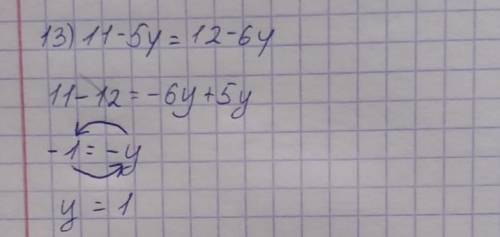 13) 11-5y=12-6y
11-12=-6y+5y
-1=-y
y=1